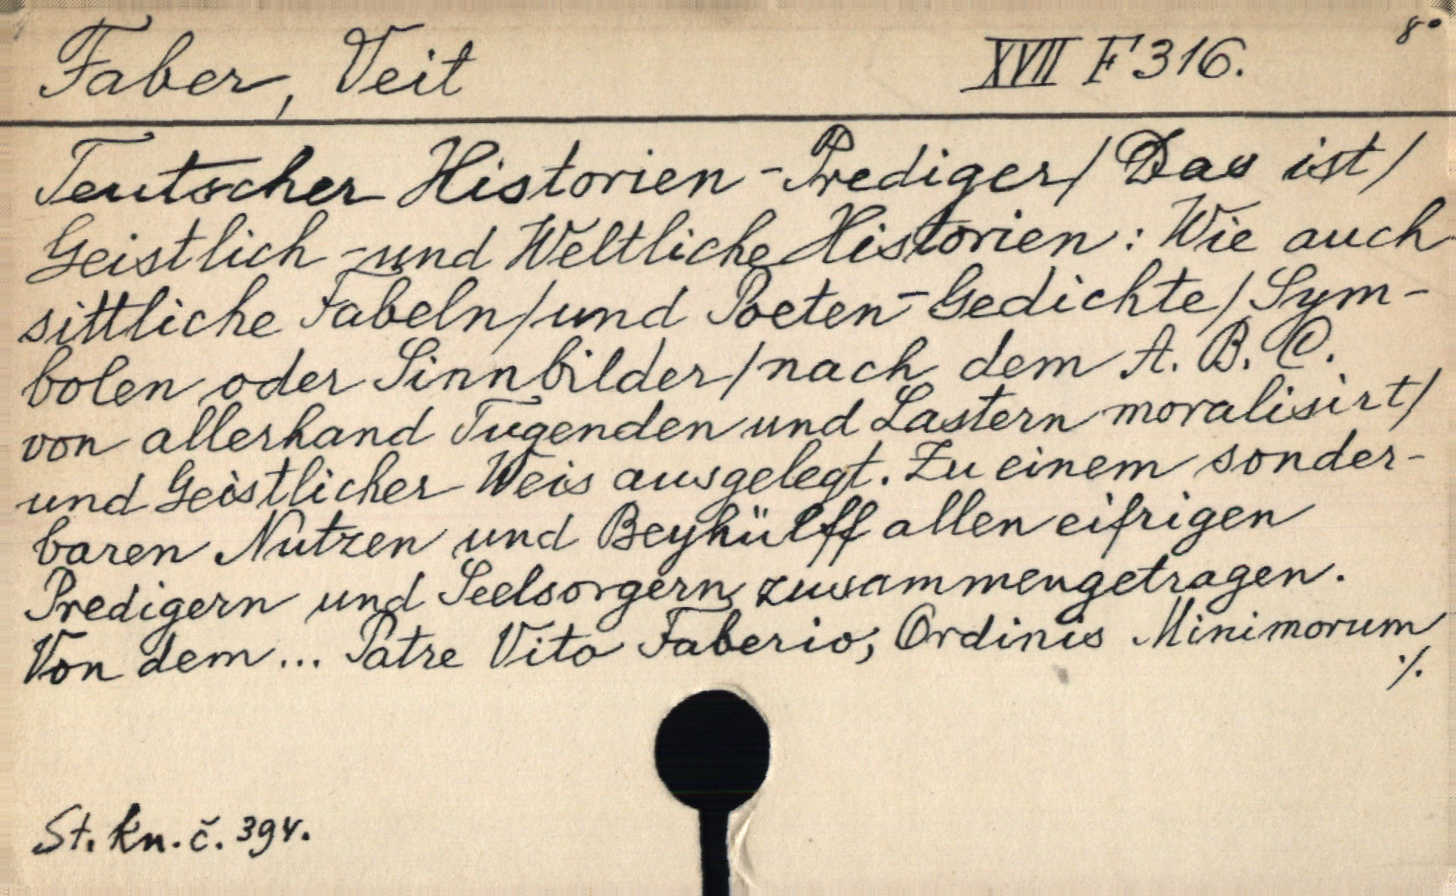 8°
Faber, Veit XVII F 316.
Teutscher Historien-Prediger/ Das ist/
Geistlich-und Weltliche Historien: Wie auch
sittliche Fabeln/und Poeten-Gedichte/Sym-
bolen oder Sinnbilder/nach dem A. B. C.
von allerhand Tugenden und Lastern moralisirt/
und Geistlicher Weis ausgelegt. Zu einem sonder-
baren Nutzen und Beyhülff allen eifrigen
Predigern und Seelsorgern zusammengetragen.
Von dem... Patre Vito Faberio, Ordinis Minimorum
./.
St. kn. č. 394.